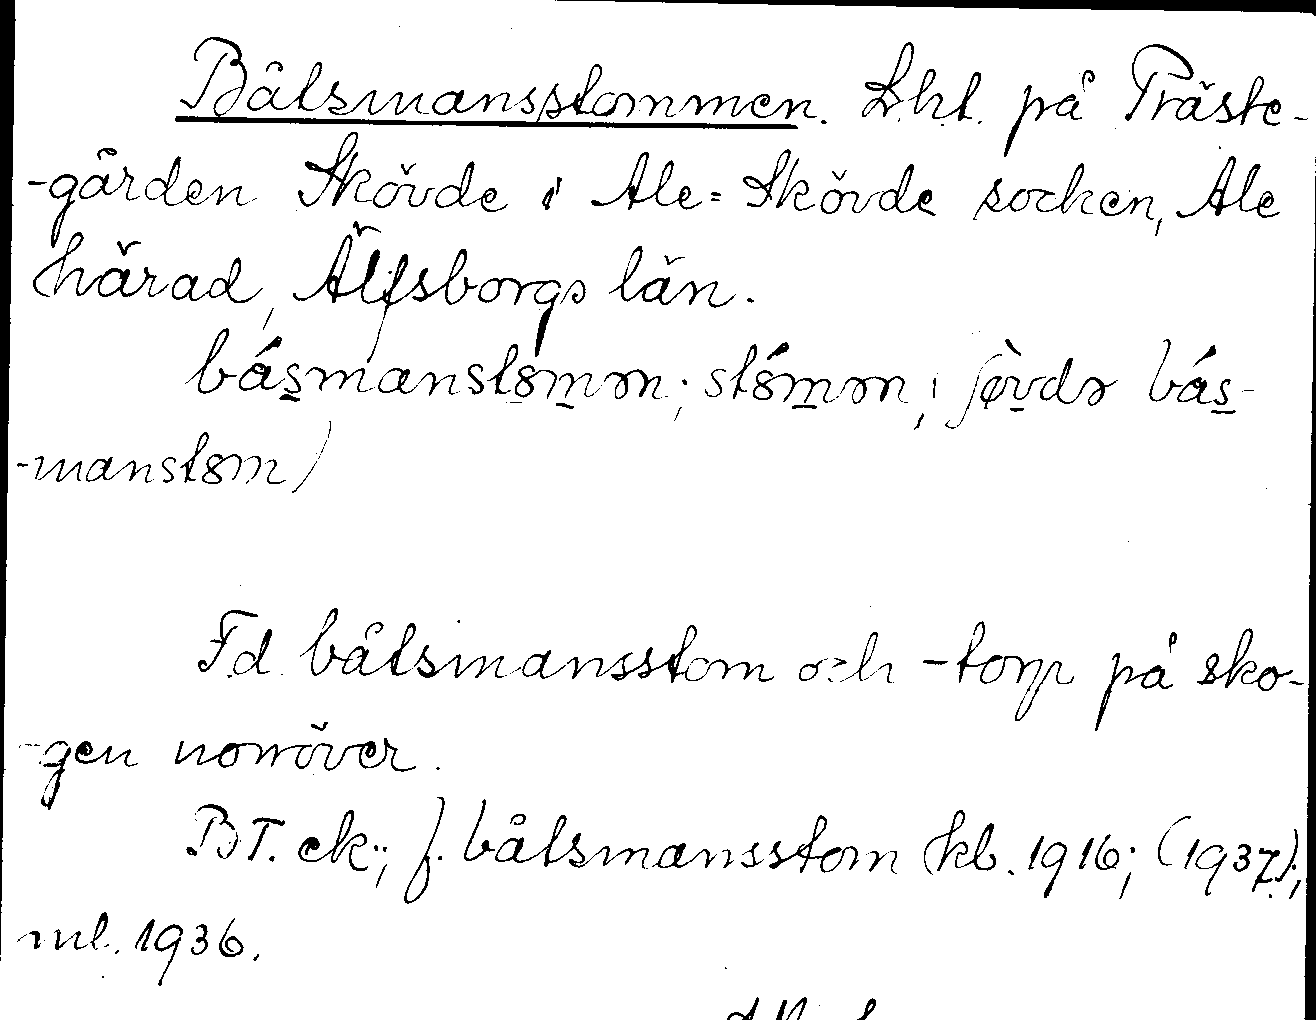 Båtsmansstommen. Lht. på Präste-
-gården Skövde i Ale-Skövde socken, Ale
härad, Älfsborgs län.
básmanstȣmən; stȣ́mən; ʃø̀vdə bás-
-manstȣm)
Fd. båtsmansstom och -torp på sko-
-gen norröver.
BT. ek.; f. båtsmansstom kb. 1916; (1937);
ml. 1936.